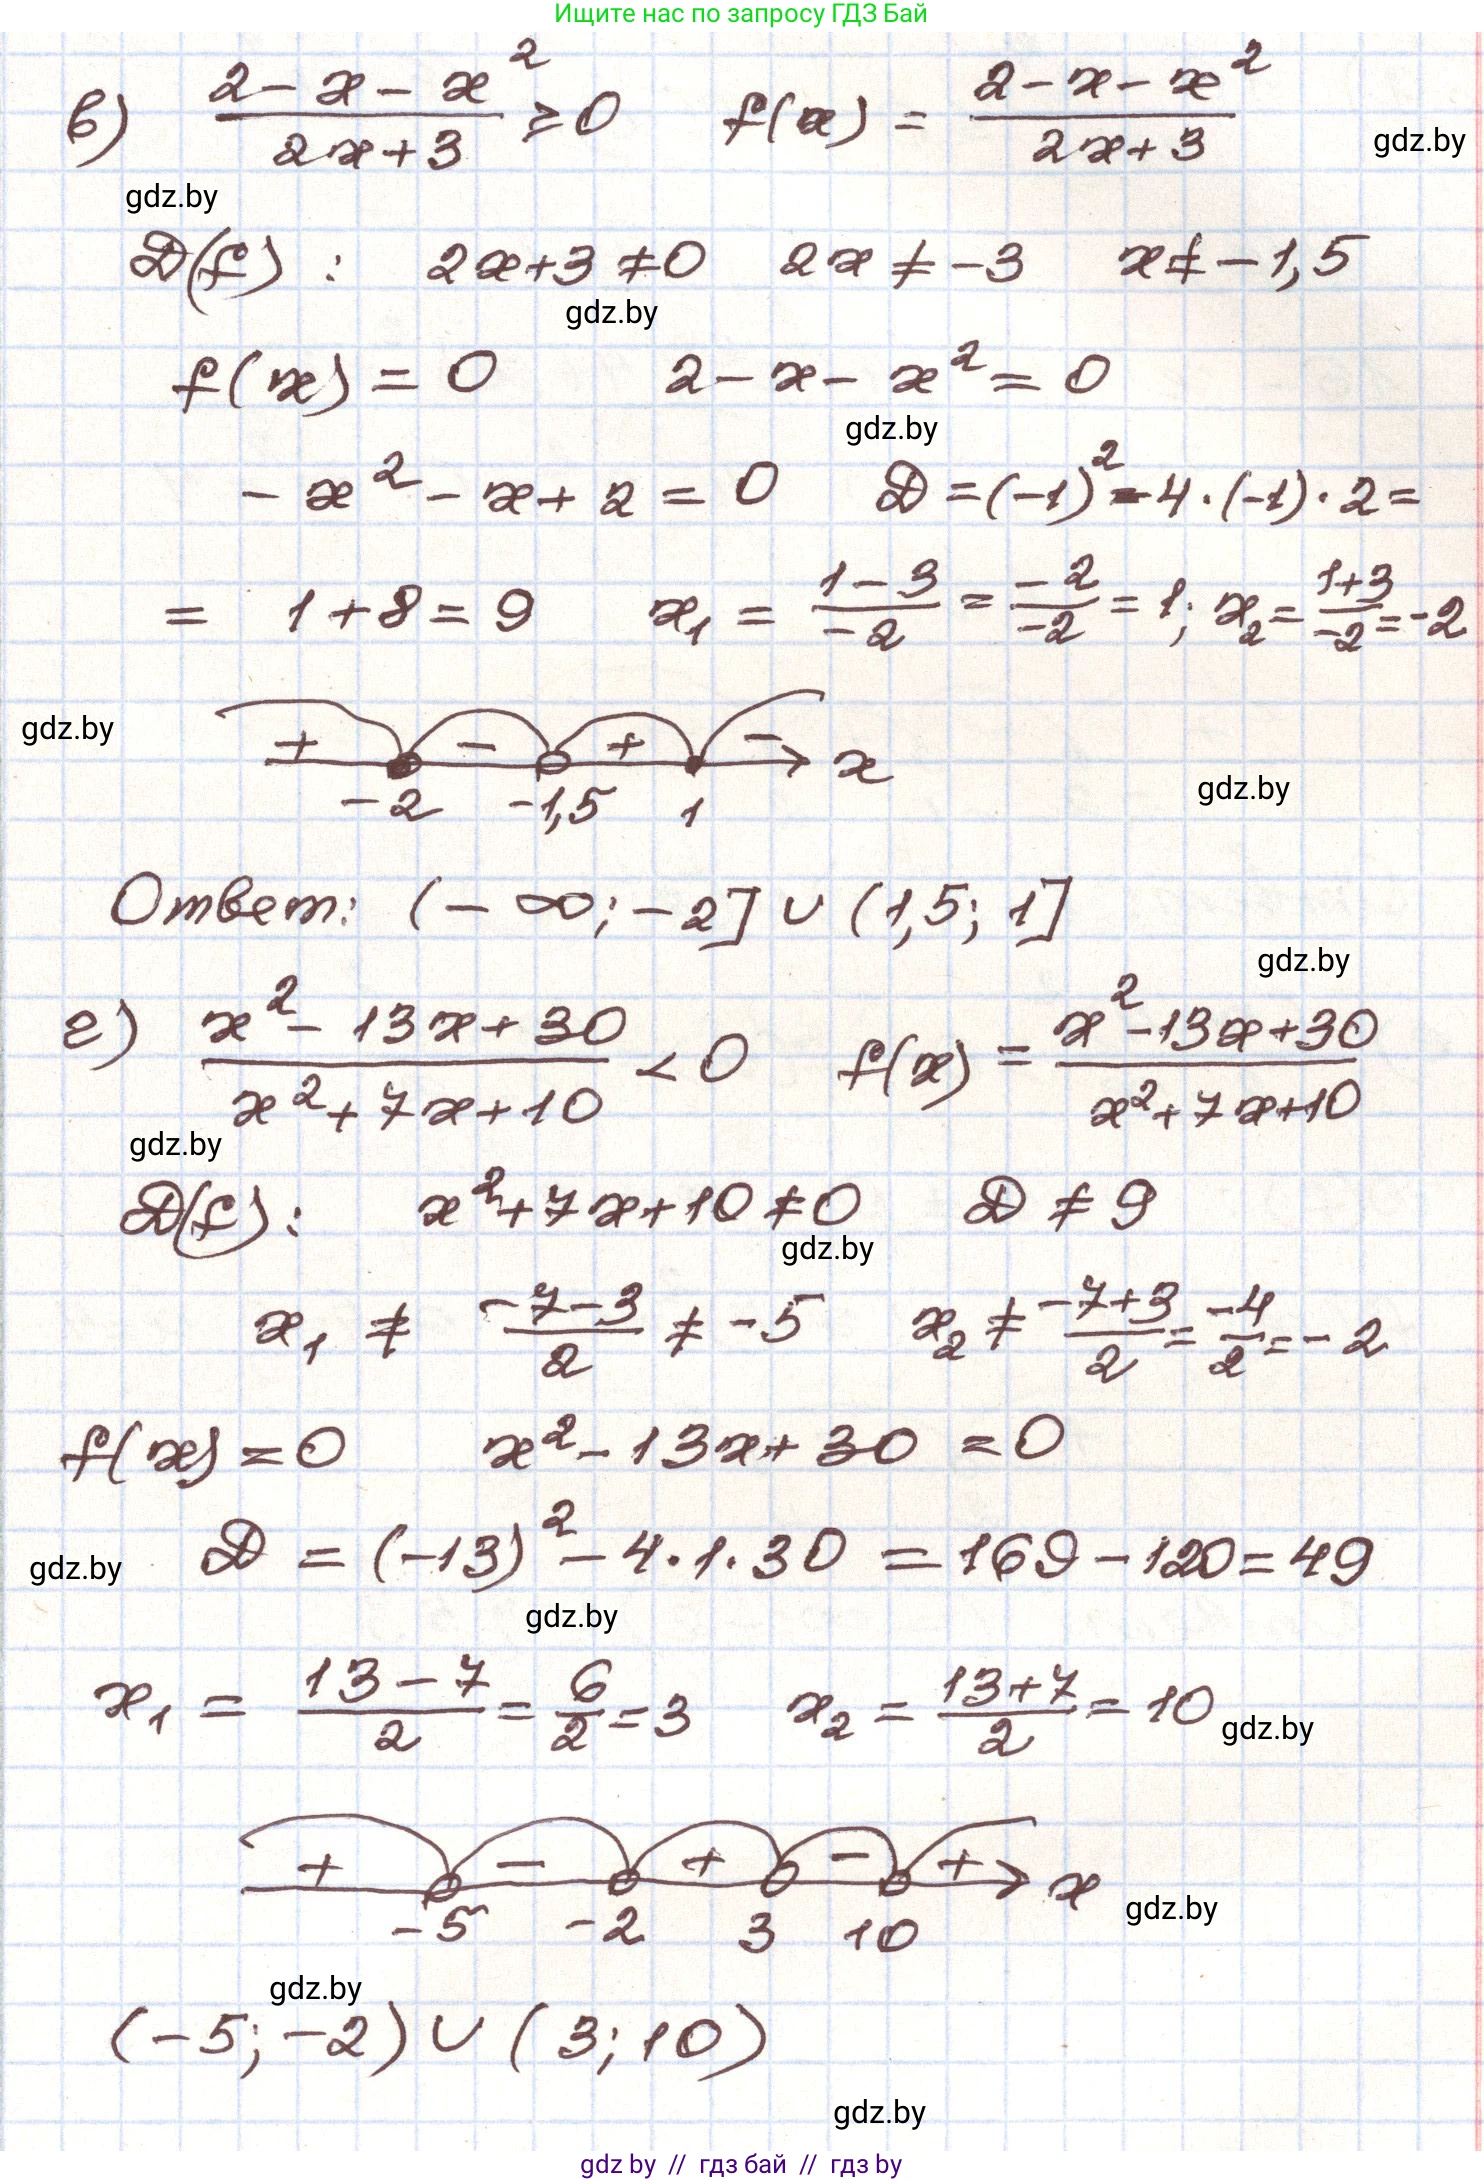 Ищите нас по запросу ГДЗ Бай
в) (2 - x - x²)/(2x+3) ≥ 0   f(x) = (2 - x - x²)/(2x+3)
gdz.by
gdz.by
D(f) : 2x+3 ≠ 0   2x ≠ -3   x ≠ -1,5
gdz.by
f(x) = 0   2 - x - x² = 0
gdz.by
-x² - x + 2 = 0   D = (-1)² - 4·(-1)·2 =
= 1+8 = 9   x₁ = (1-3)/(-2) = (-2)/(-2) = 1; x₂ = (1+3)/(-2) = -2
gdz.by
+ - + - x
gdz.by
-2 -1,5 1
Ответ: (-∞; -2] ∪ (1,5; 1]
gdz.by
г) (x² - 13x + 30)/(x² + 7x + 10) < 0   f(x) = (x² - 13x + 30)/(x² + 7x + 10)
gdz.by
D(f): x² + 7x + 10 ≠ 0   D ≠ 9
gdz.by
x₁ ≠ (-7-3)/2 ≠ -5   x₂ ≠ (-7+3)/2 = (-4)/2 = -2
f(x) = 0   x² - 13x + 30 = 0
D = (-13)² - 4·1·30 = 169 - 120 = 49
gdz.by
gdz.by
x₁ = (13-7)/2 = 6/2 = 3   x₂ = (13+7)/2 = 10
gdz.by
+ - + - + x
gdz.by
-5 -2 3 10
gdz.by
(-5; -2) ∪ (3; 10)
gdz.by
gdz by // гдз бай // gdz by